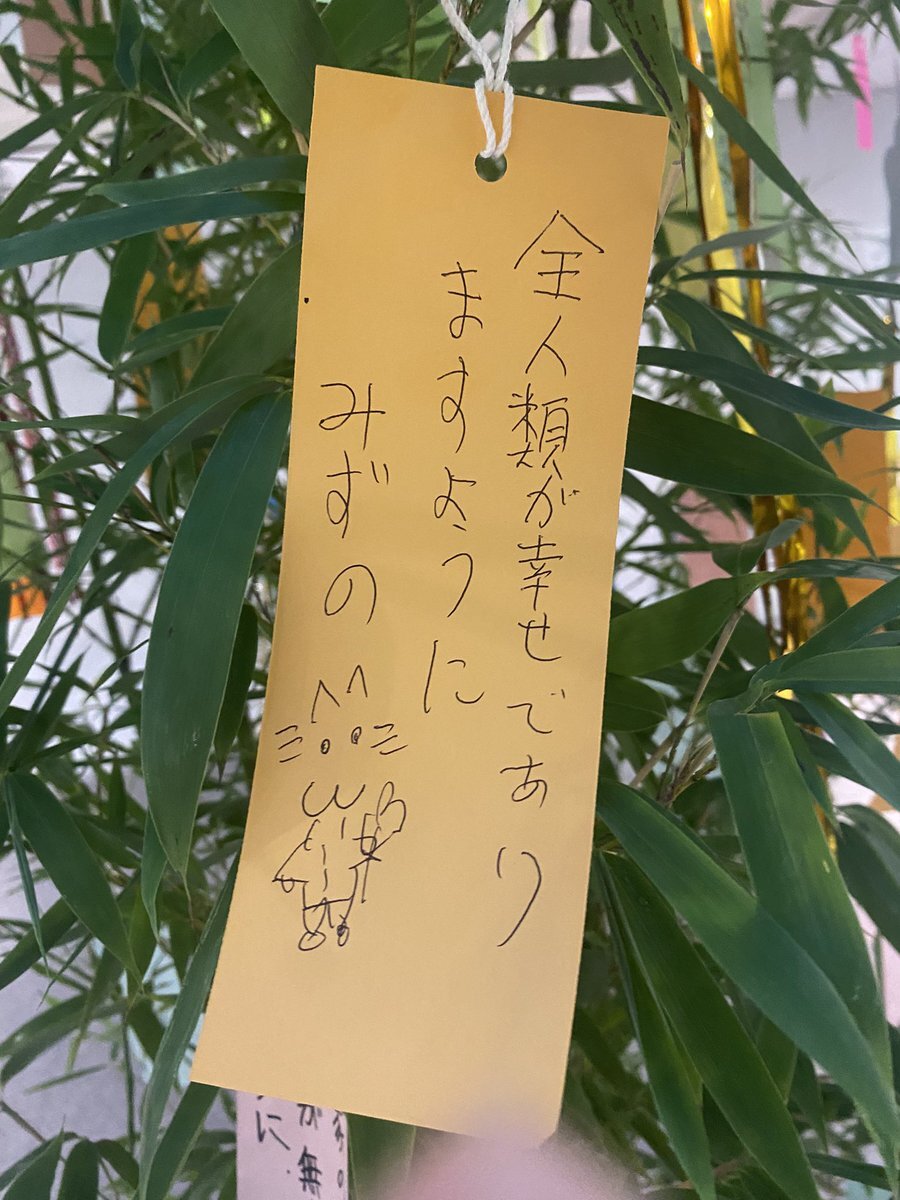 全人類が幸せであり
ますように
みずの
が無
に